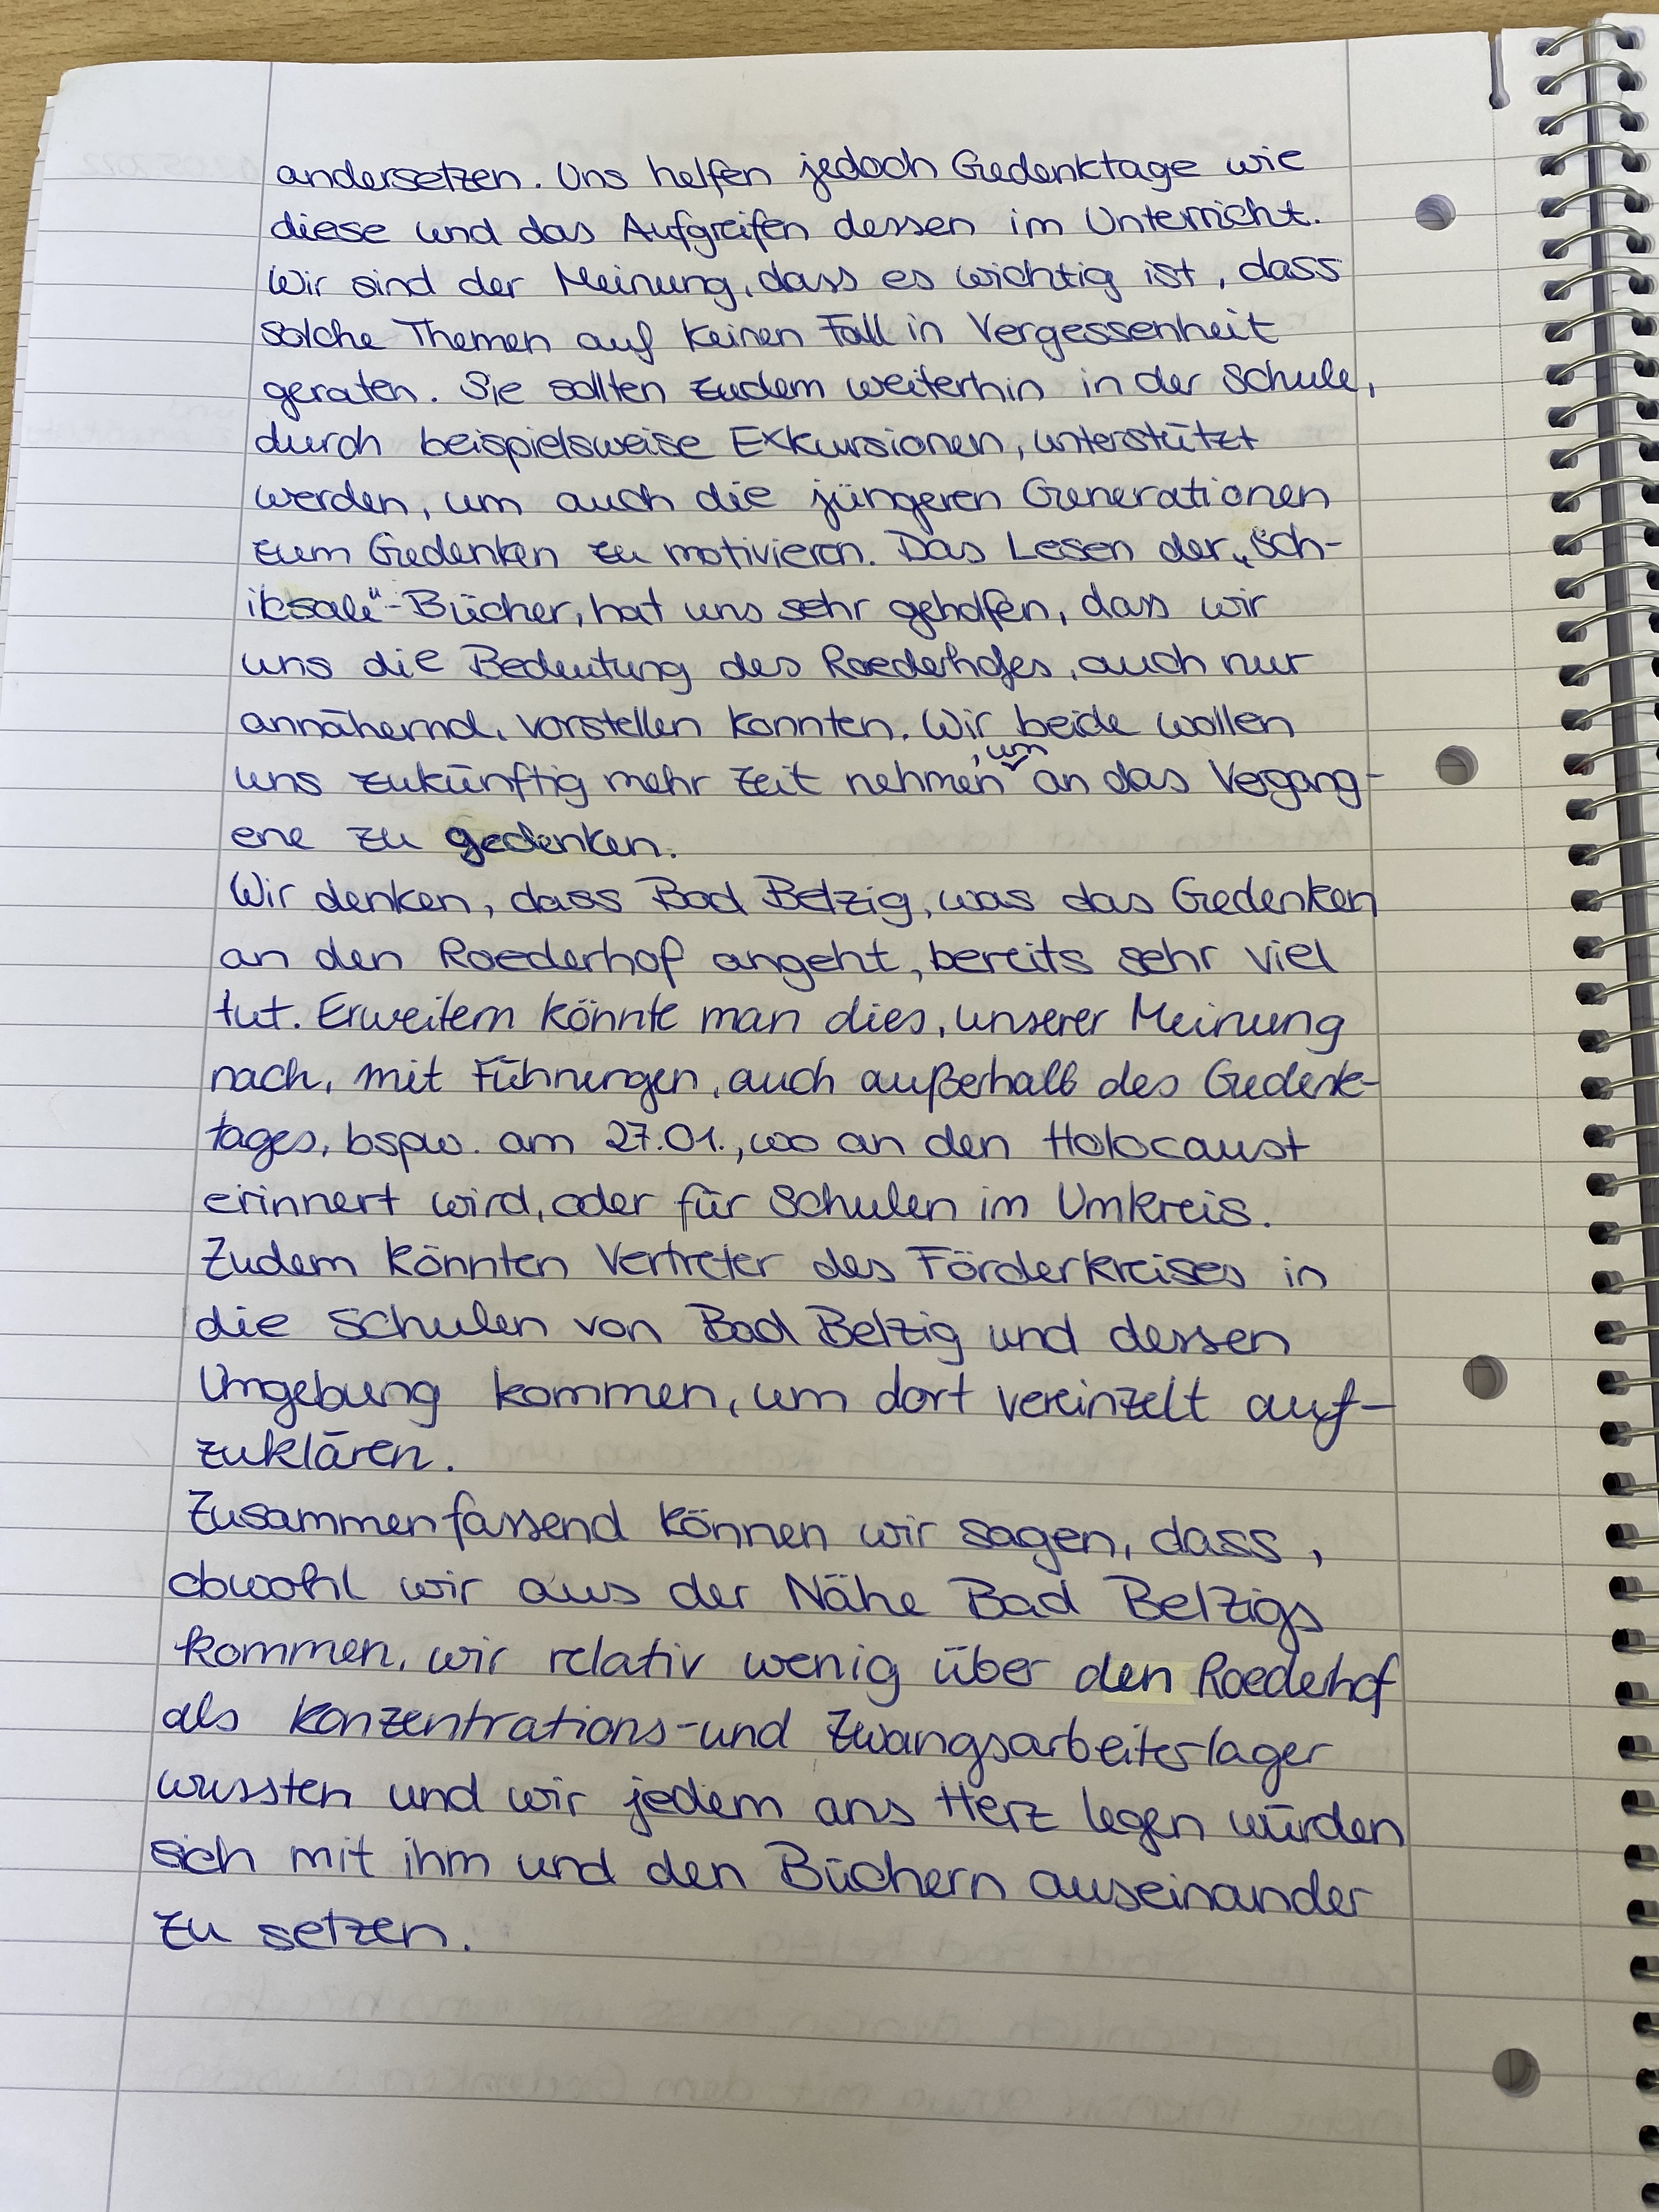 andersetzen. Uns helfen jedoch Gedenktage wie
diese und das Aufgreifen dessen im Unterricht.
Wir sind der Meinung, dass es wichtig ist, dass
solche Themen auf keinen Fall in Vergessenheit
geraten. Sie sollten zudem weiterhin in der Schule,
durch beispielsweise Exkursionen, unterstützt
werden, um auch die jüngeren Generationen
zum Gedenken zu motivieren. Das Lesen der „Sch-
iksale"-Bücher, hat uns sehr geholfen, dass wir
uns die Bedeutung des Roederhofes, auch nur
annähernd, vorstellen konnten. Wir beide wollen
uns zukünftig mehr Zeit nehmen, um an das Vergang-
ene zu gedenken.
Wir denken, dass Bad Belzig, was das Gedenken
an den Roederhof angeht, bereits sehr viel
tut. Erweitern könnte man dies, unserer Meinung
nach, mit Führungen, auch außerhalb des Gedenk-
tages, bspw. am 27.01., wo an den Holocaust
erinnert wird, oder für Schulen im Umkreis.
Zudem könnten Vertreter des Förderkreises in
die Schulen von Bad Belzig und dessen
Umgebung kommen, um dort vereinzelt auf-
zuklären.
Zusammenfassend können wir sagen, dass,
obwohl wir aus der Nähe Bad Belzigs
kommen, wir relativ wenig über den Roederhof
als Konzentrations- und Zwangsarbeiterlager
wussten und wir jedem ans Herz legen würden
sich mit ihm und den Büchern auseinander
zu setzen.